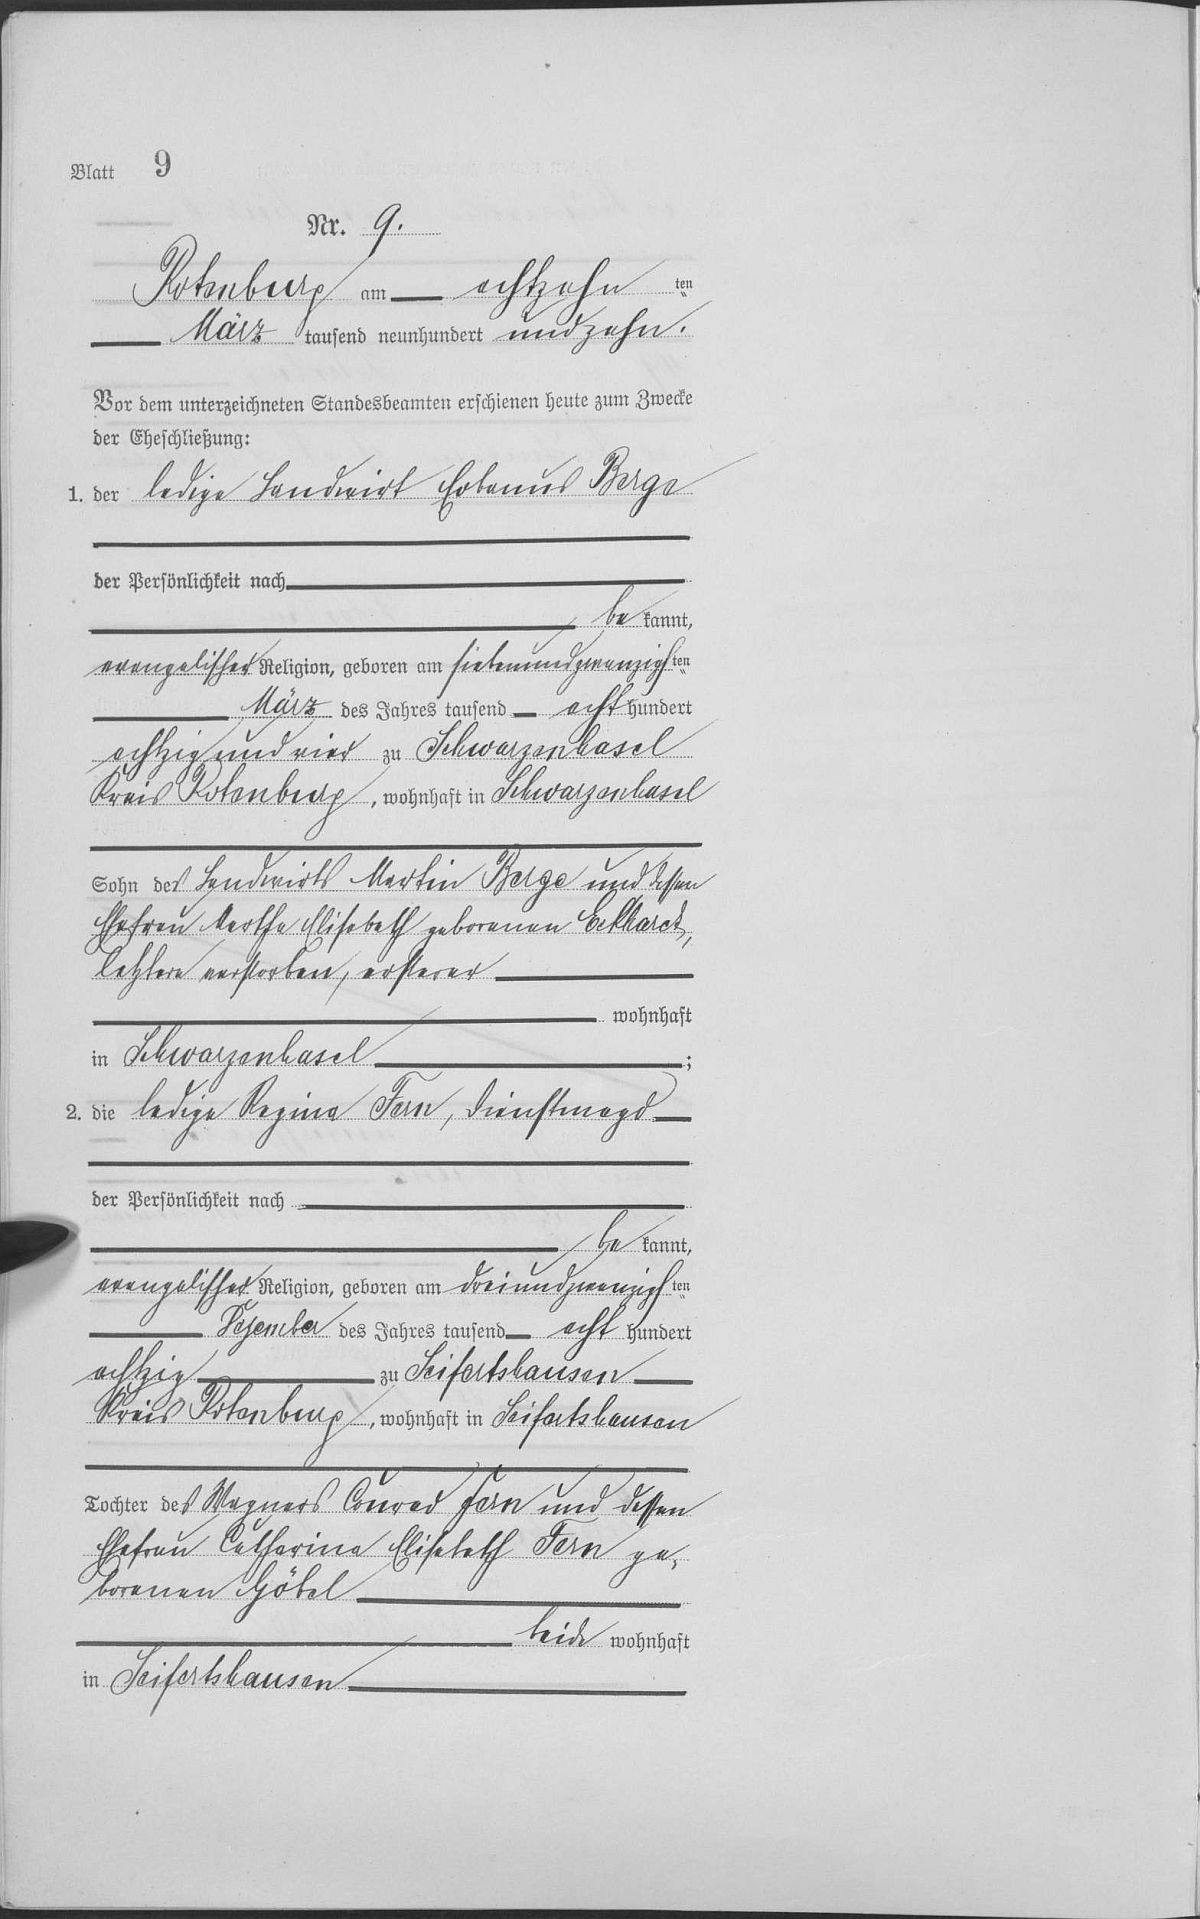 Blatt 9
Nr. 9.
Rotenburg am achtzehn ten
März tausend neunhundert undzehn.
Vor dem unterzeichneten Standesbeamten erschienen heute zum Zwecke
der Eheschließung:
1. der ledige Landwirt Erbanus Berge
der Persönlichkeit nach
be kannt,
evangelischer Religion, geboren am siebenundzwanzigsten
März des Jahres tausend acht hundert
achtzig und vier zu Schwarzenhasel
Kreis Rotenburg, wohnhaft in Schwarzenhasel
Sohn des Landwirts Martin Berge und dessen
Ehefrau Martha Elisabeth geborenen Eckhardt,
letztere verstorben, ersterer
wohnhaft
in Schwarzenhasel ;
2. die ledige Regina Fern, Dienstmagd
der Persönlichkeit nach
be kannt,
evangelischer Religion, geboren am dreiundzwanzigsten
Dezember des Jahres tausend acht hundert
achtzig zu Seifertshausen
Kreis Rotenburg, wohnhaft in Seifertshausen
Tochter des Wagners Conrad Fern und dessen
Ehefrau Catharina Elisabeth Fern ge-
borenen Göbel
beide wohnhaft
in Seifertshausen